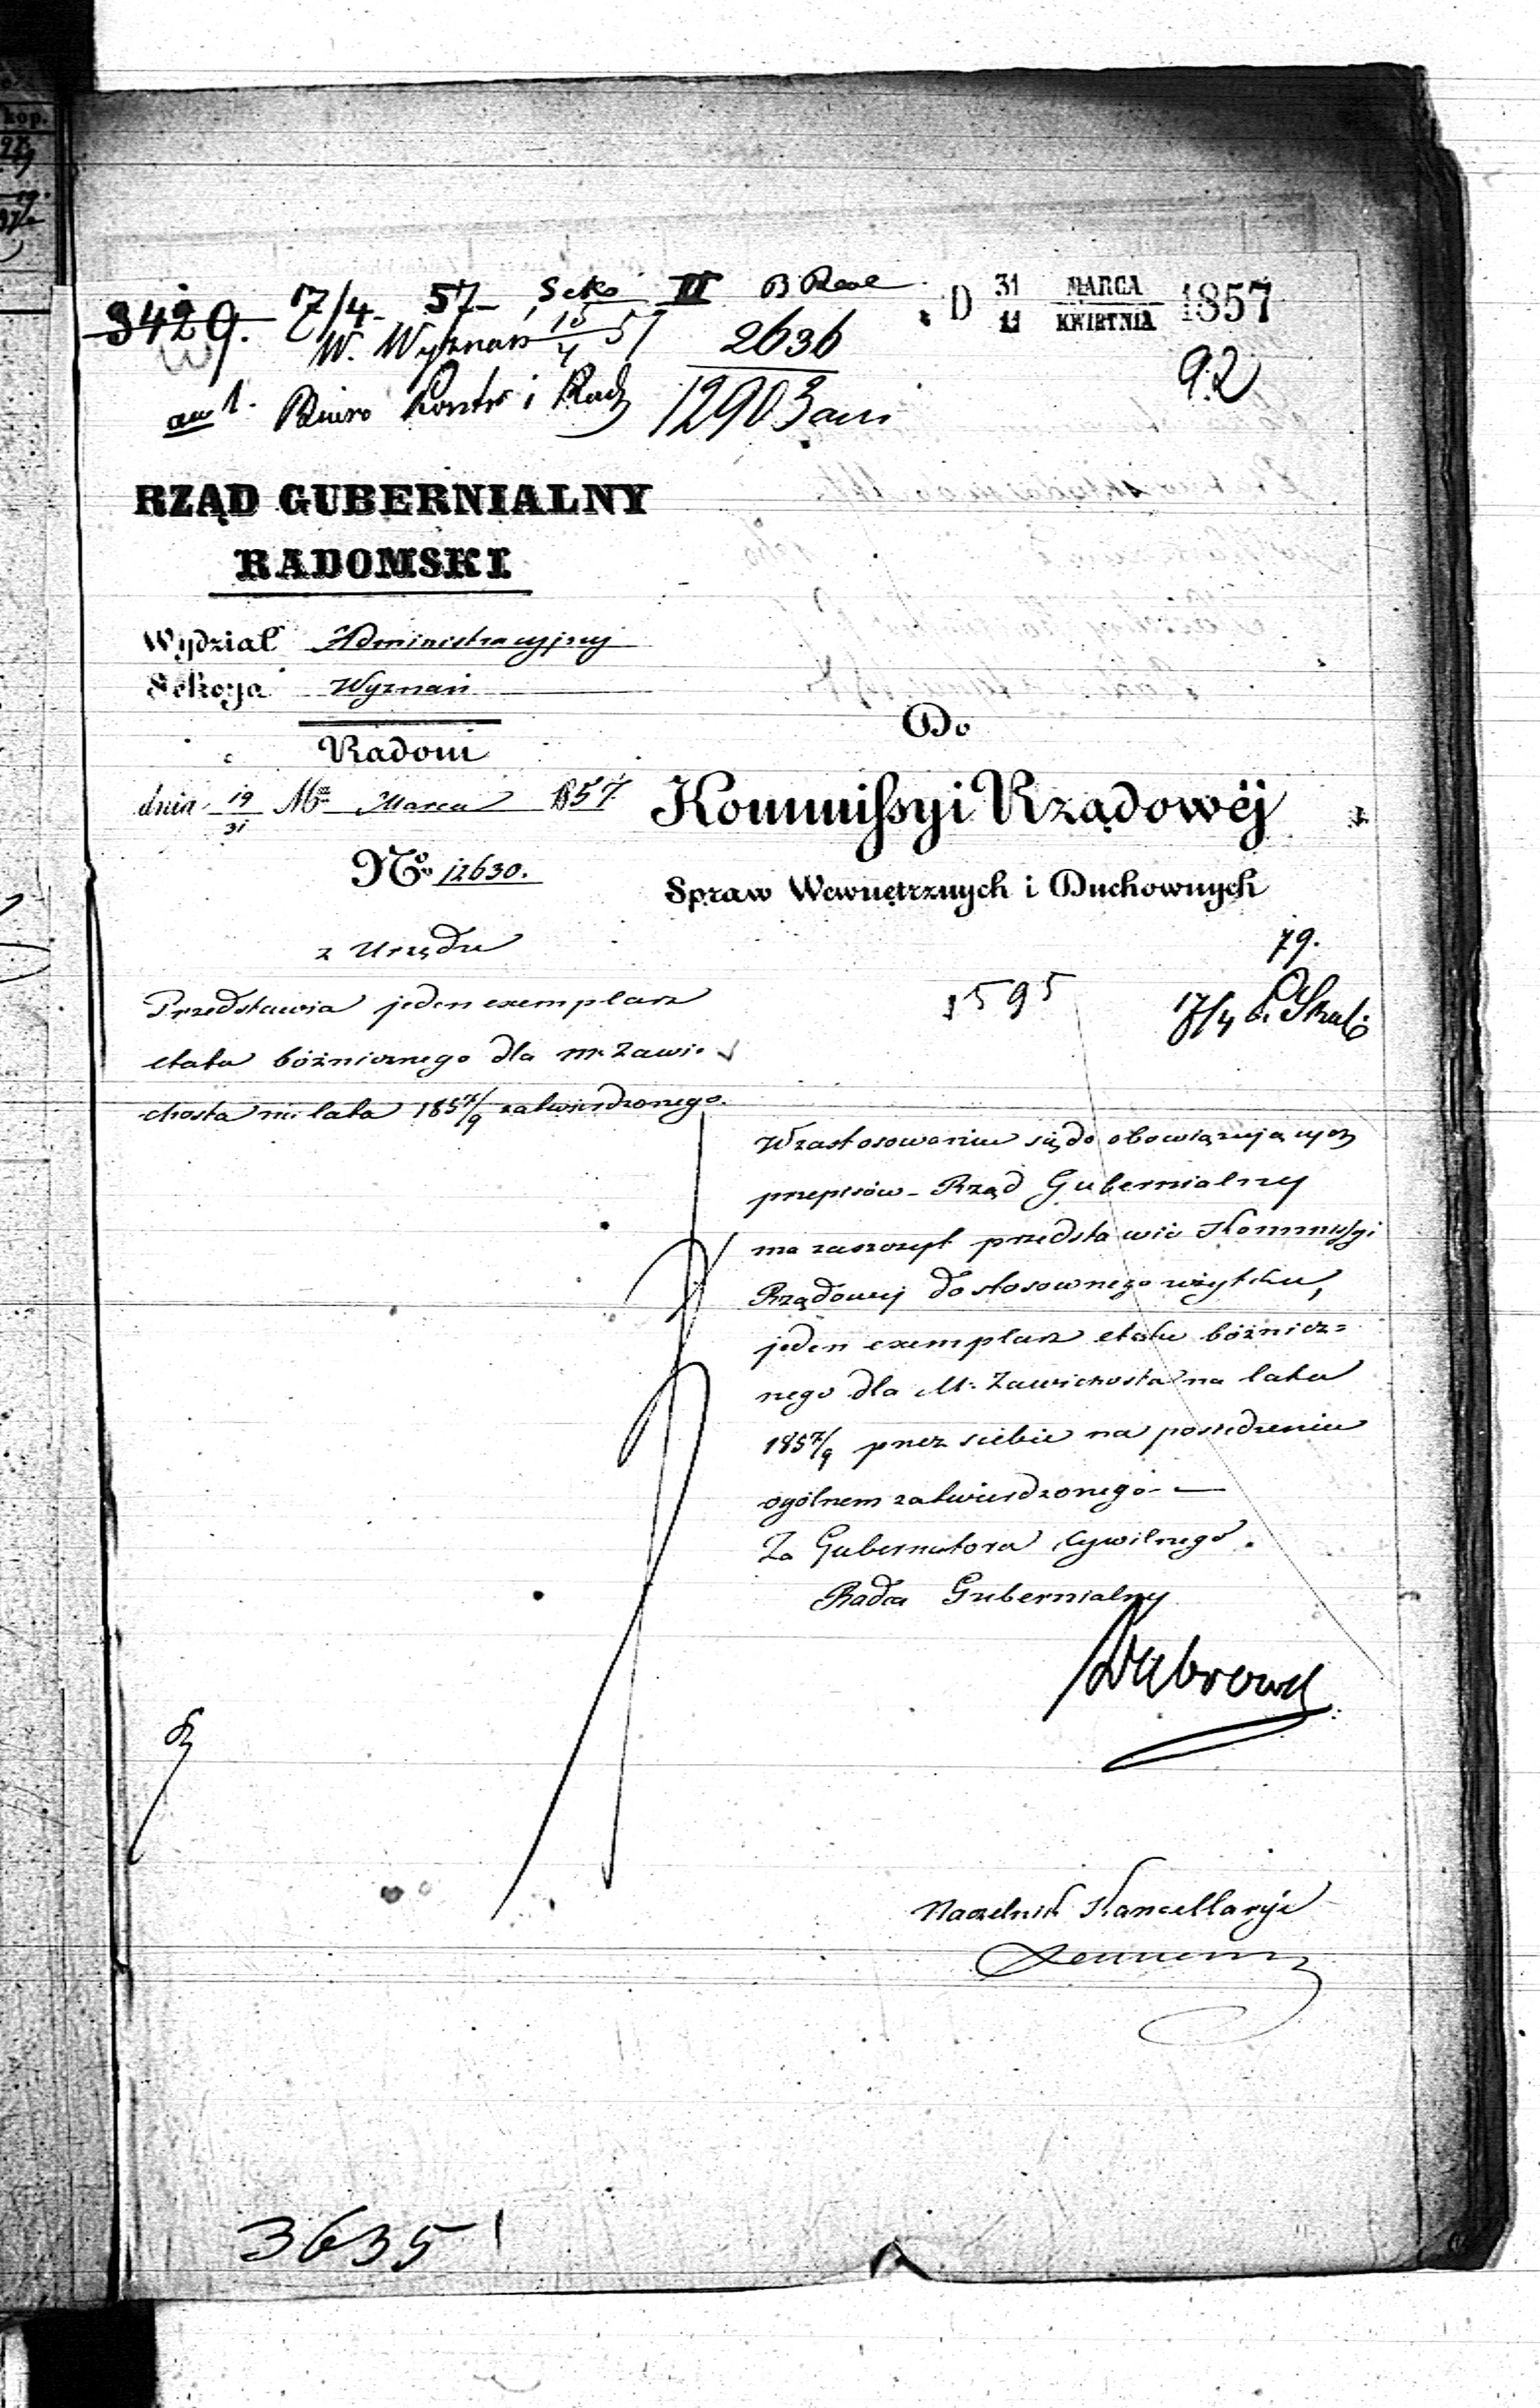 3429. 17/4 57 Sekc II B Rach
D 31/11 MARCA/KWIETNIA 1857
W. Wyznań 15/4 57 2636
92
Biuro Kontr i Rach 12903
RZĄD GUBERNIALNY
RADOMSKI
Wydział Administracyjny
Sekcya Wyznań
Radom
dnia 19/31 Mca Marca 1857.
No 12630.
Do
Kommissyi Rządowéj
Spraw Wewnętrznych i Duchownych
z Urzędu
Przedstawia jeden exemplarz
etatu bóżnicznego dla m. Zawi-
chosta na lata 1857/9 zatwierdzonego.
79.
1595
17/4
W zastosowaniu się do obowiązujących
przepisów - Rząd Gubernialny
ma zaszczyt przedstawić Kommissyi
Rządowej do stosownego użytku,
jeden exemplarz etatu bóżnicz=
nego dla M. Zawichosta na lata
1857/9 przez siebie na posiedzeniu
ogólnem zatwierdzonego -
Za Gubernatora Cywilnego.
Radca Gubernialny
Dąbrowski
Naczelnik Kancellaryi
3635